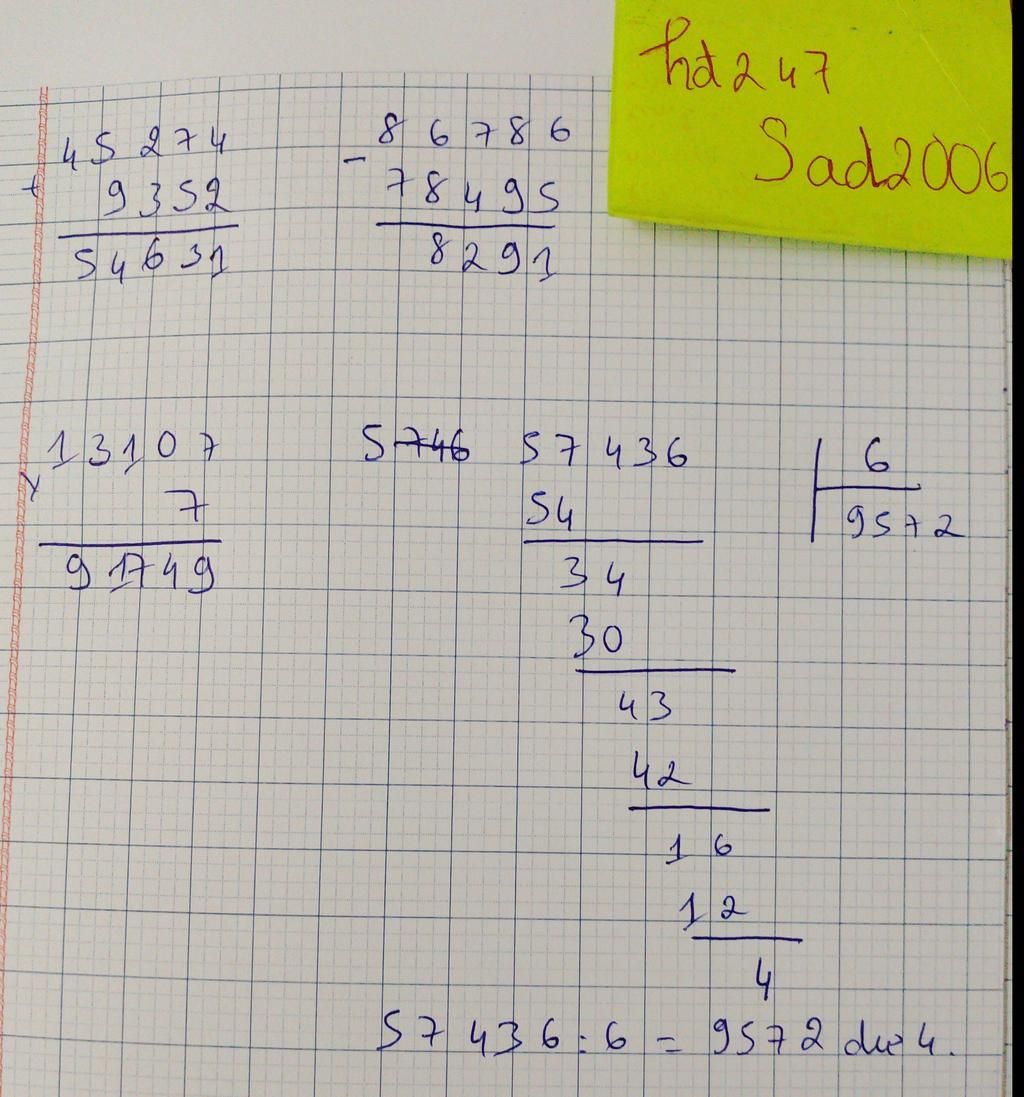 hd247
Sad2006
45274
+ 9352
54631
- 86786
78495
8291
13107
x 7
91749
5746 57436 6
54 9572
34
30
43
42
16
12
4
57436:6 = 9572 dư 4.